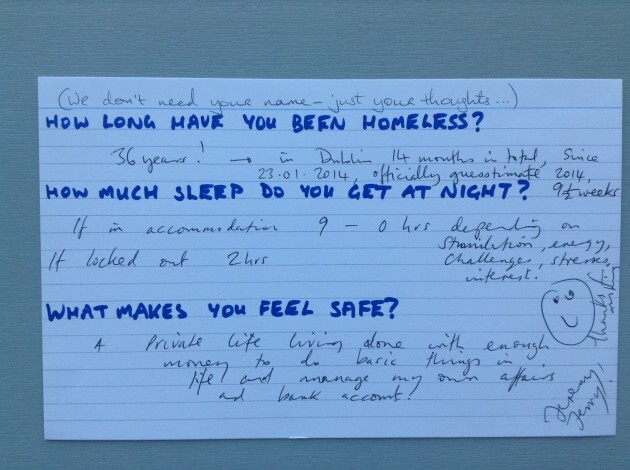 (We don't need your name - just your thoughts...)
HOW LONG HAVE YOU BEEN HOMELESS?
36 years! → in Dublin 14 months in total, Since
23.01.2014, officially guesstimate 2014,
9½ weeks
HOW MUCH SLEEP DO YOU GET AT NIGHT?
If in accommodation 9 - 0 hrs depending on
stimulation, energy,
If locked out 2hrs challenges, stresses,
interest.
WHAT MAKES YOU FEEL SAFE?
A private life living alone with enough
money to do basic things in
life and manage my own affairs
and bank account!
Thanks for asking
Jeremy